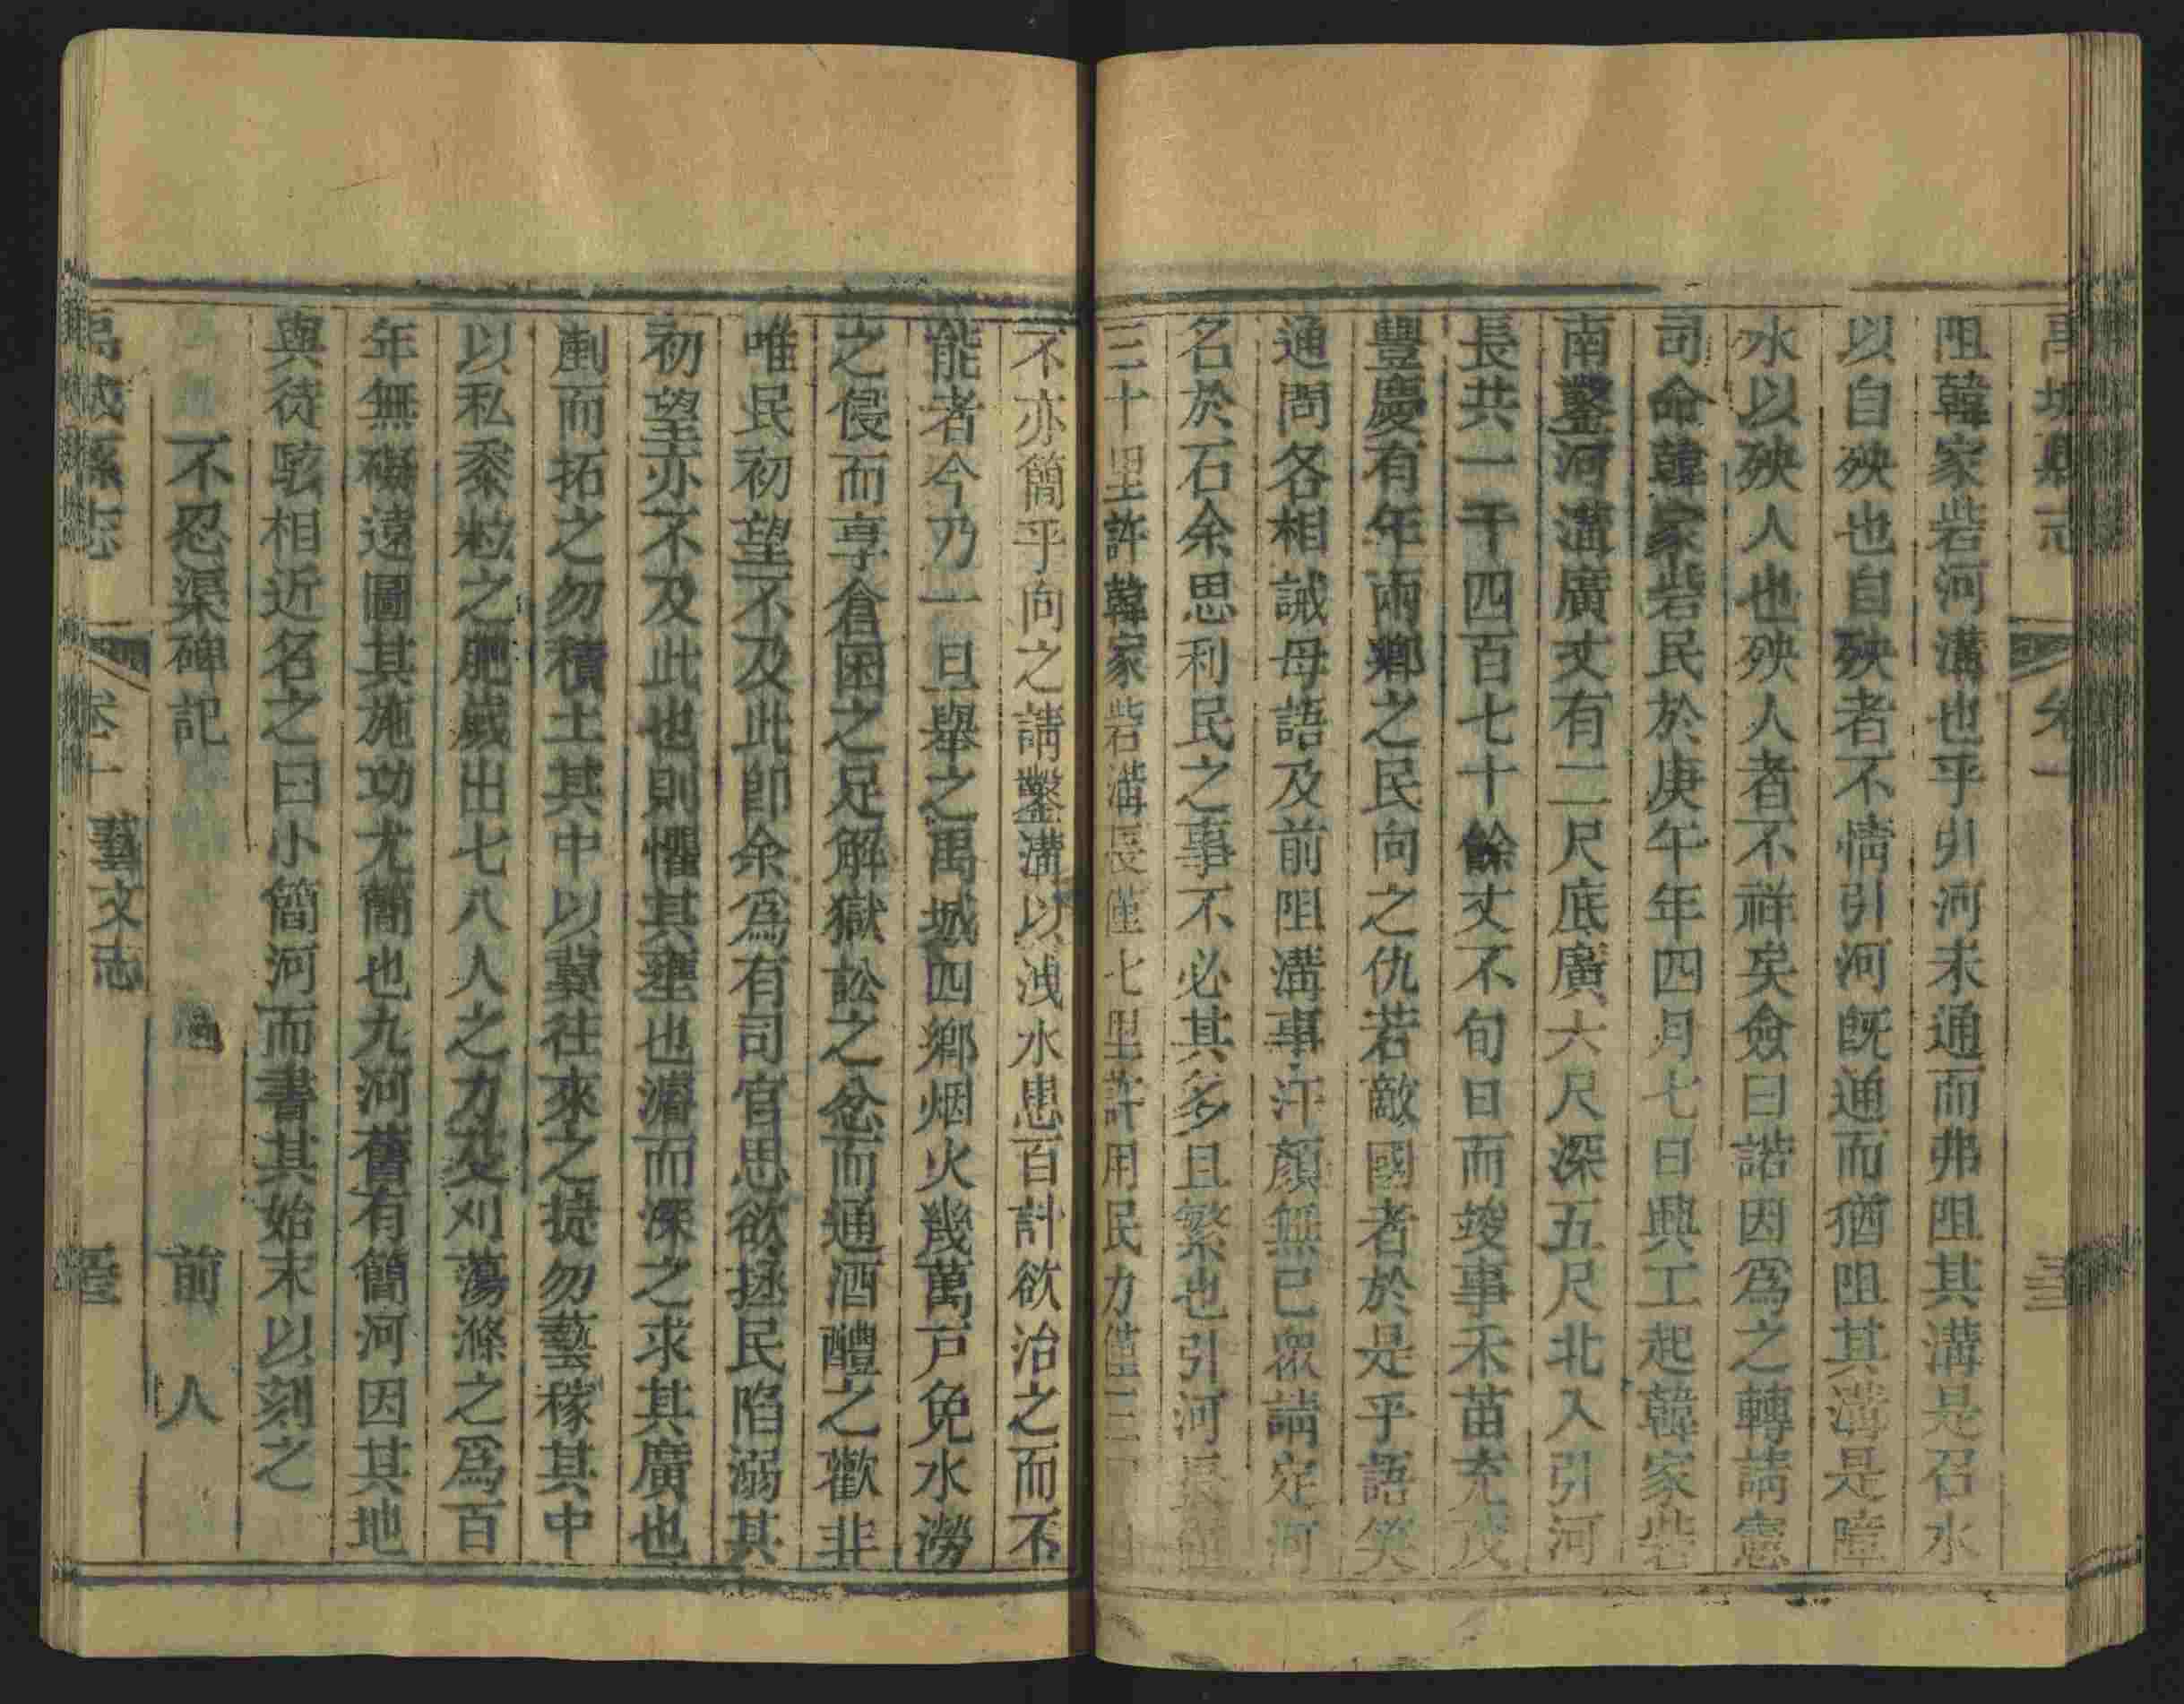 阻韓家砦河溝也乎引河未通而弗阻其溝是召水
以自殃也自殃者不情引河旣通而猶阻其溝是障
水以殃人也殃人者不祥矣僉曰諾因爲之轉請憲
司命韓家砦民於庚午年四月七日興工起韓家砦
南鑿河溝廣丈有二尺底廣六尺深五尺北入引河
長共一千四百七十餘丈不旬日而竣事禾苗充茂
豐慶有年兩鄉之民向之仇若敵國者於是乎語笑
通問各相誡毋語及前阻溝事汗顏無已眾請定河
名於石余思利民之事不必其多且繁也引河長僅
三十里許韓家砦溝長僅七里許用民力僅三
不亦簡乎向之請鑿溝以洩水患百計欲治之而不
能者今乃一旦舉之禹城四鄉烟火幾萬戸免水澇
之侵而享倉囷之足解獄訟之忿而通酒醴之歡非
唯民初望不及此卽余爲有司官思欲拯民陷溺其
初望亦不及此也則懼其壅也濬而深之求其廣也
劃而拓之勿積土其中以冀往來之提勿藝稼其中
以私黍粒之肥歲出七八人之力芟刈蕩滌之爲百
年無礙遠圖其施功尤簡也九河舊有簡河因其地
與徒駭相近名之曰小簡河而書其始末以刻之
不忍渠碑記 前人
禹城縣志 卷十 藝文志